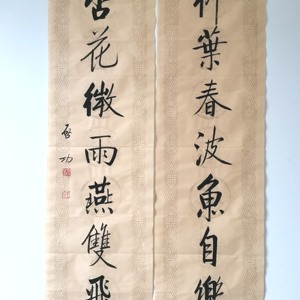 葉春波魚自樂
杏花微雨燕雙飛
启功